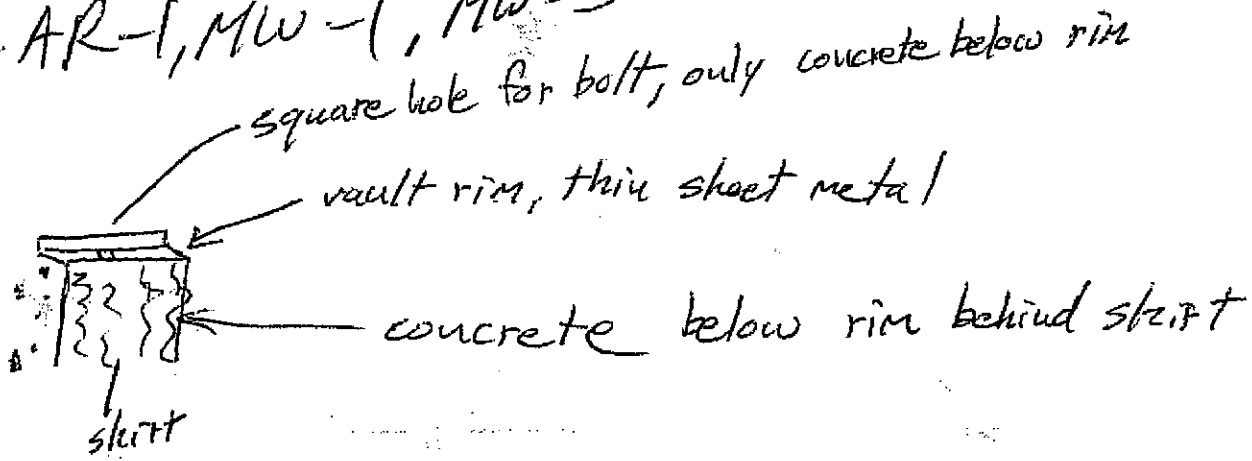 AR-1, MW-1, MW-
square hole for bolt, only concrete below rim
vault rim, thin sheet metal
concrete below rim behind skirt
skirt